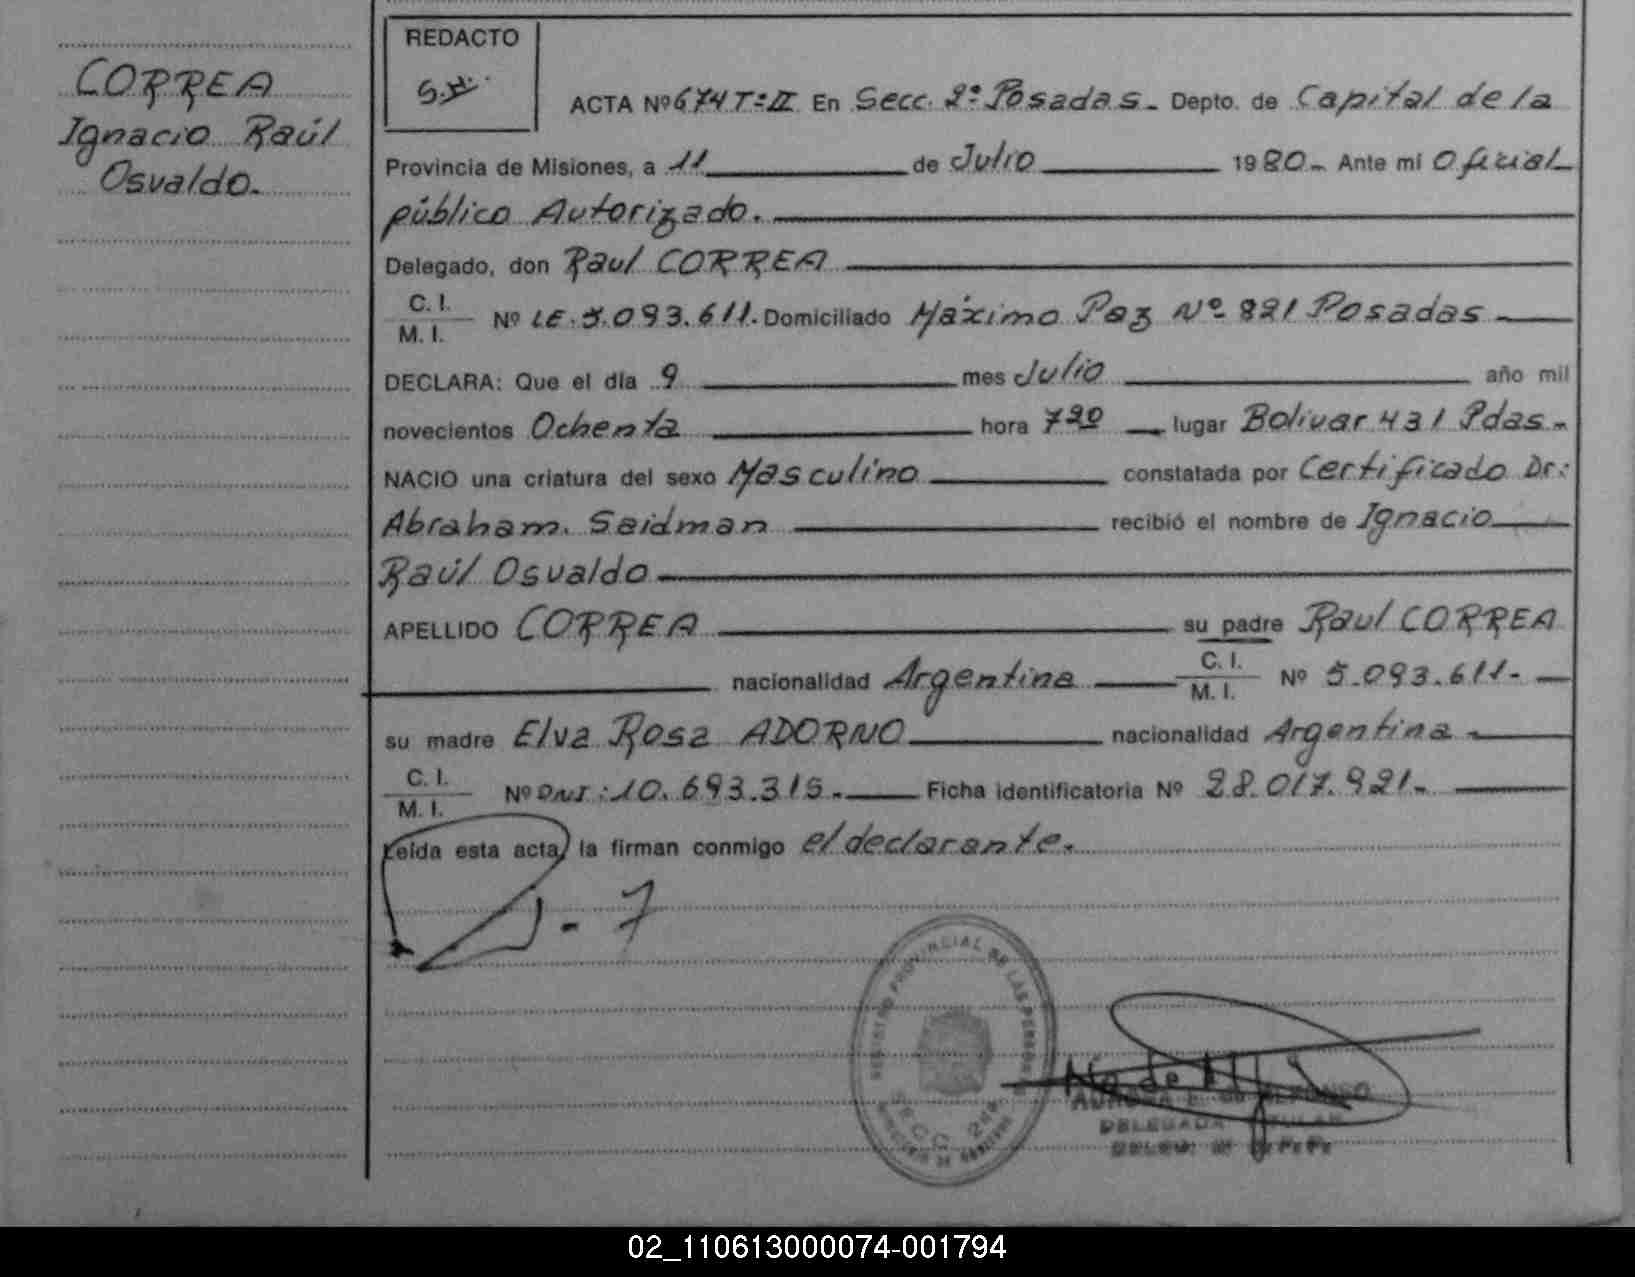 CORREA
Ignacio Raúl
Osvaldo.
REDACTO
ACTA Nº 674 Tº II En Secc. 2ª Posadas. Depto. de Capital de la
Provincia de Misiones, a 11 de Julio 1980 Ante mí Oficial
público Autorizado.
Delegado, don Raul CORREA
C. I.
M. I. Nº LE. 5.093.611. Domiciliado Máximo Paz Nº 821 Posadas
DECLARA: Que el día 9 mes Julio año mil
novecientos Ochenta hora 7 30 lugar Bolivar 431 Pdas.
NACIO una criatura del sexo Masculino constatada por Certificado Dr:
Abraham Seidman recibió el nombre de Ignacio
Raúl Osvaldo
APELLIDO CORREA su padre Raul CORREA
nacionalidad Argentina C. I.
M. I. Nº 5.093.611.
su madre Elva Rosa ADORNO nacionalidad Argentina
C. I.
M. I. Nº DNI: 10.693.315. Ficha identificatoria Nº 28.017.921.
Leída esta acta, la firman conmigo el declarante.
REGISTRO PROVINCIAL DE LAS PERSONAS
SECC. 2da
DELEGADA TITULAR
02_110613000074-001794